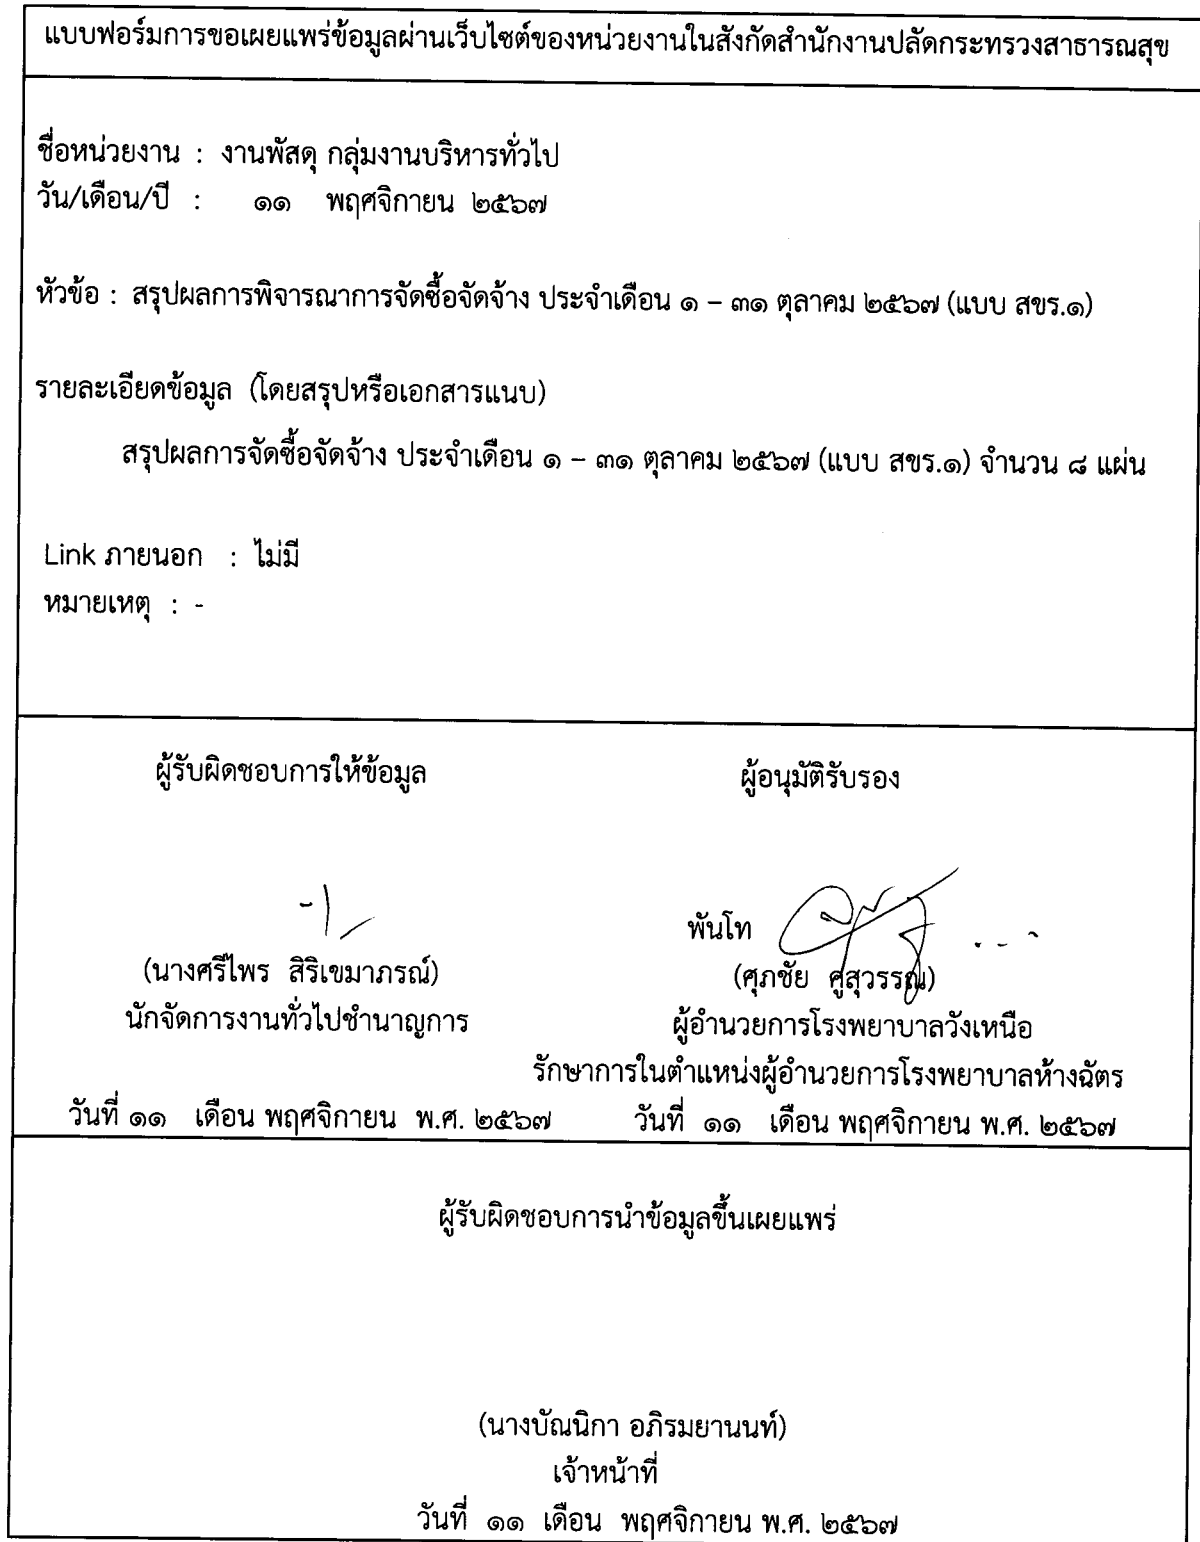 แบบฟอร์มการขอเผยแพร่ข้อมูลผ่านเว็บไซต์ของหน่วยงานในสังกัดสำนักงานปลัดกระทรวงสาธารณสุข
ชื่อหน่วยงาน : งานพัสดุ กลุ่มงานบริหารทั่วไป
วัน/เดือน/ปี : ๑๑ พฤศจิกายน ๒๕๖๗
หัวข้อ : สรุปผลการพิจารณาการจัดซื้อจัดจ้าง ประจำเดือน ๑ – ๓๑ ตุลาคม ๒๕๖๗ (แบบ สขร.๑)
รายละเอียดข้อมูล (โดยสรุปหรือเอกสารแนบ)
สรุปผลการจัดซื้อจัดจ้าง ประจำเดือน ๑ – ๓๑ ตุลาคม ๒๕๖๗ (แบบ สขร.๑) จำนวน ๘ แผ่น
Link ภายนอก : ไม่มี
หมายเหตุ : -
ผู้รับผิดชอบการให้ข้อมูล
(นางศรีไพร สิริเขมาภรณ์)
นักจัดการงานทั่วไปชำนาญการ
วันที่ ๑๑ เดือน พฤศจิกายน พ.ศ. ๒๕๖๗
ผู้อนุมัติรับรอง
พันโท
(ศุภชัย ศู่สุวรรณ)
ผู้อำนวยการโรงพยาบาลวังเหนือ
รักษาการในตำแหน่งผู้อำนวยการโรงพยาบาลห้างฉัตร
วันที่ ๑๑ เดือน พฤศจิกายน พ.ศ. ๒๕๖๗
ผู้รับผิดชอบการนำข้อมูลขึ้นเผยแพร่
(นางบัณนิกา อภิรมยานนท์)
เจ้าหน้าที่
วันที่ ๑๑ เดือน พฤศจิกายน พ.ศ. ๒๕๖๗